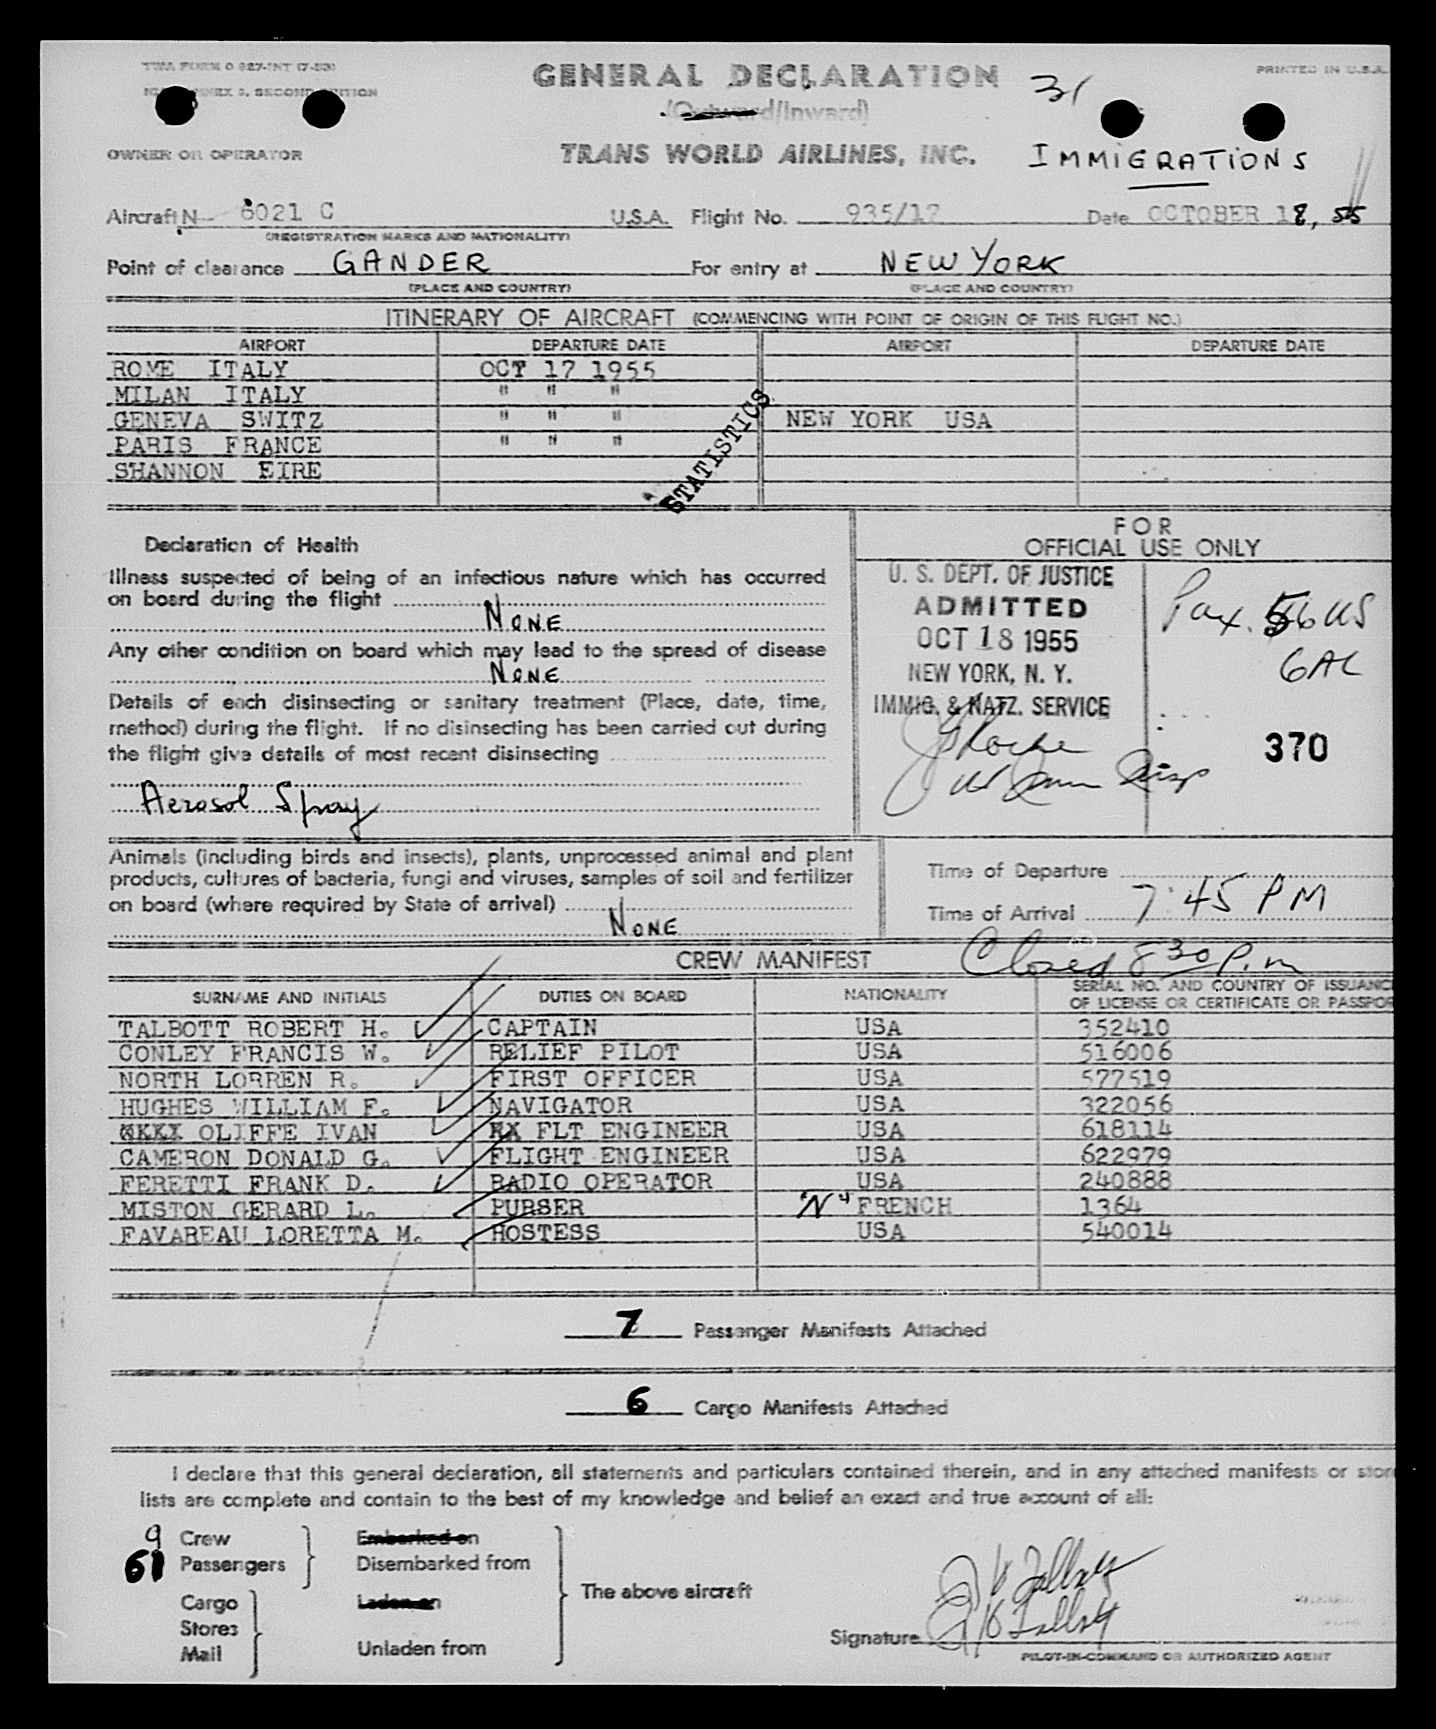 TWA FORM O 827-INT (7-53)
GENERAL DECLARATION
31
PRINTED IN U.S.A.
ANNEX 9, SECOND EDITION
(Outward/Inward)
OWNER OR OPERATOR
TRANS WORLD AIRLINES, INC.
IMMIGRATIONS
Aircraft N 6021 C U.S.A. Flight No. 935/17 Date OCTOBER 18, 55
(REGISTRATION MARKS AND NATIONALITY)
Point of clearance GANDER For entry at NEW YORK
(PLACE AND COUNTRY) (PLACE AND COUNTRY)
ITINERARY OF AIRCRAFT (COMMENCING WITH POINT OF ORIGIN OF THIS FLIGHT NO.)
AIRPORT DEPARTURE DATE AIRPORT DEPARTURE DATE
ROME ITALY OCT 17 1955
MILAN ITALY " " "
GENEVA SWITZ " " " NEW YORK USA
PARIS FRANCE " " "
SHANNON EIRE
STATISTICS
Declaration of Health
Illness suspected of being of an infectious nature which has occurred
on board during the flight
NONE
Any other condition on board which may lead to the spread of disease
NONE
Details of each disinsecting or sanitary treatment (Place, date, time,
method) during the flight. If no disinsecting has been carried out during
the flight give details of most recent disinsecting
Aerosol Spray
FOR
OFFICIAL USE ONLY
U. S. DEPT. OF JUSTICE
ADMITTED
OCT 18 1955
NEW YORK, N. Y.
IMMIG. & NATZ. SERVICE
Pax. 56 US
6 AL
370
Animals (including birds and insects), plants, unprocessed animal and plant
products, cultures of bacteria, fungi and viruses, samples of soil and fertilizer
on board (where required by State of arrival)
NONE
Time of Departure
Time of Arrival 7:45 PM
Closed 8 30 P.m
CREW MANIFEST
SURNAME AND INITIALS DUTIES ON BOARD NATIONALITY SERIAL NO. AND COUNTRY OF ISSUANC
OF LICENSE OR CERTIFICATE OR PASSPOR
TALBOTT ROBERT H. CAPTAIN USA 352410
CONLEY FRANCIS W. RELIEF PILOT USA 516006
NORTH LORREN R. FIRST OFFICER USA 577519
HUGHES WILLIAM F. NAVIGATOR USA 322056
OLIFFE IVAN FLT ENGINEER USA 618114
CAMERON DONALD G. FLIGHT ENGINEER USA 622979
FERETTI FRANK D. RADIO OPERATOR USA 240888
MISTON GERARD L. PURSER "N" FRENCH 1364
FAVAREAU LORETTA M. HOSTESS USA 540014
7 Passenger Manifests Attached
6 Cargo Manifests Attached
I declare that this general declaration, all statements and particulars contained therein, and in any attached manifests or stor
lists are complete and contain to the best of my knowledge and belief an exact and true account of all:
9 Crew Embarked on
61 Passengers Disembarked from
The above aircraft
Cargo Laden on
Stores
Mail Unladen from
Signature
PILOT-IN-COMMAND OR AUTHORIZED AGENT